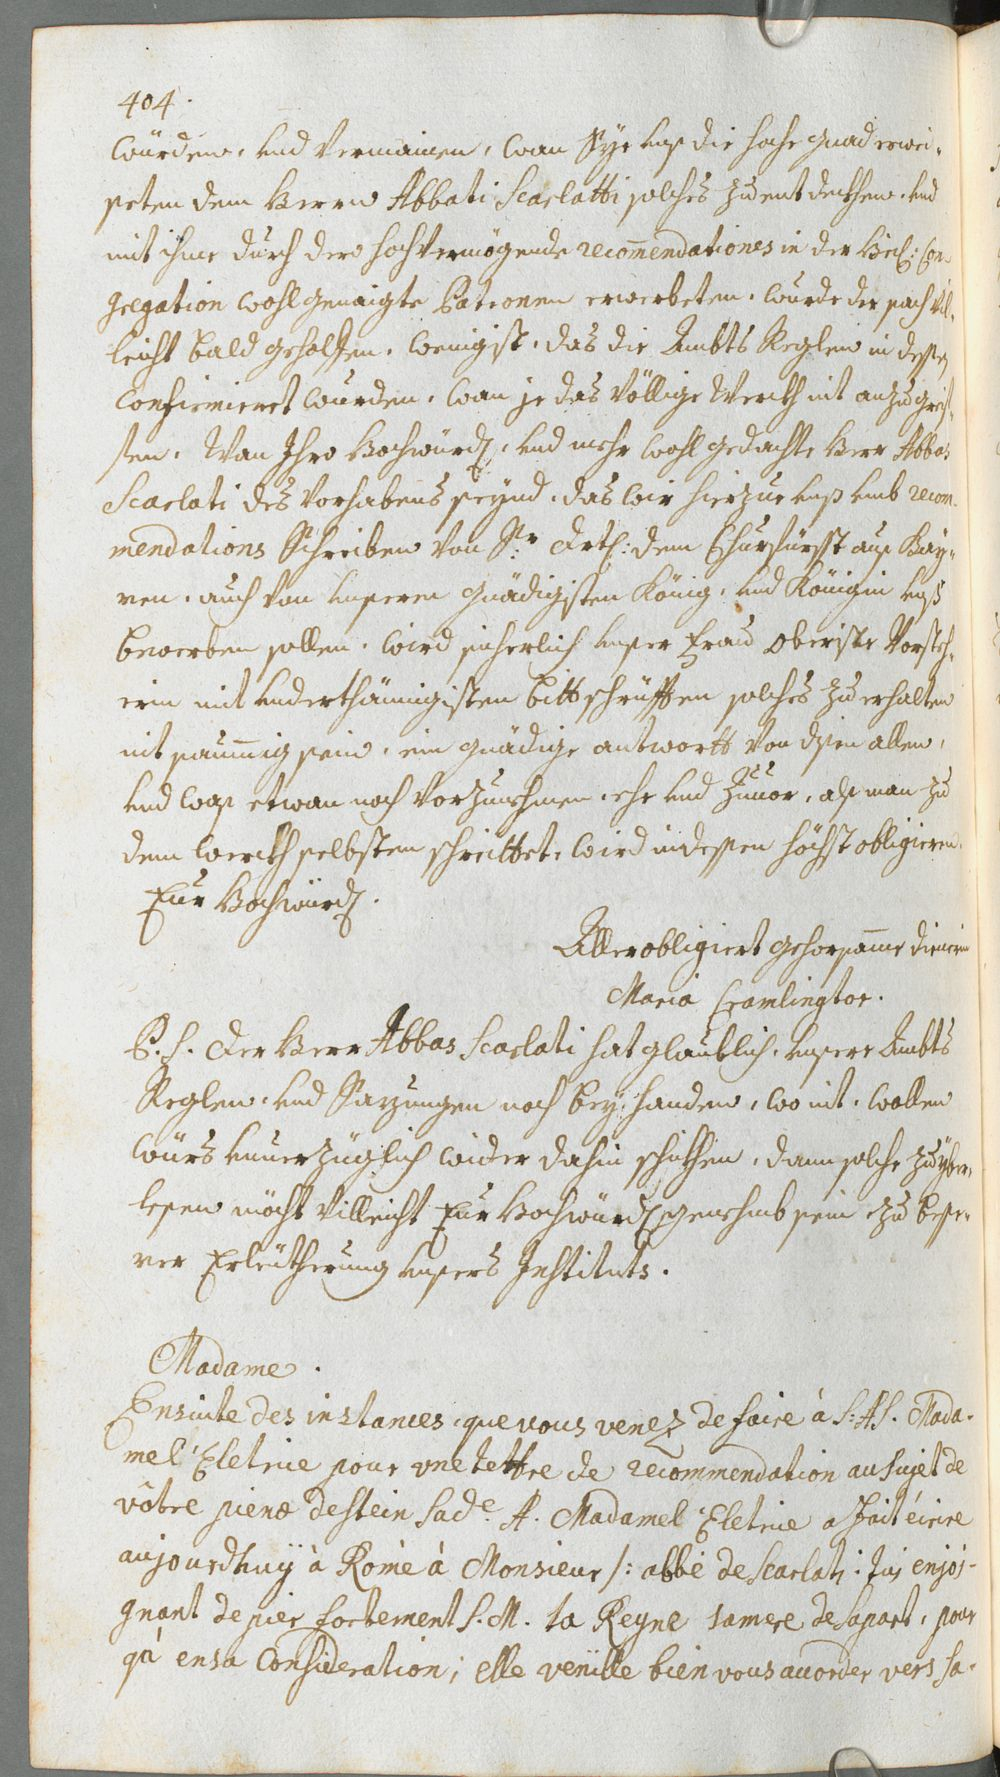 404.
würden, und vermainen, wan Sye unß die hohe gnad erwei-
seten dem Herrn Abbati Scarlatti solches zu entdeckhen, und
mit ihme durch dero hochvermögende recomendationes in der Heil: Con-
gregation wohlgenaigte Patronen erwerbeten, wurde der sach vil-
leicht bald geholffen, wenigist, das die Ambts Reglen in dessen
Confirmieret wurden, wan je das völlige Werckh nit anzugreif-
fen. Wan Ihro Hochwürd, und mehr wohlgedachte Herr Abbas
Scarlati des vorhabens seynd, das wir hierzue unß umb recom-
mendations Schreiben von Sr. Drtl: dem Churfürst auß Bay-
ren, auch von unseren gnädigisten König, und Königin unß
bewerben sollen, wird sicherlich unser Frau Oberiste Vorsteh-
erin mit underthänigisten bittschrüfften solches zu erhalten
nit saumig sein, ein gnädige antwortt von disen allen,
und was etwan noch vorzunehmen, ehe und zuuor, alß man zu
dem werckh selbsten schreittet, wird indessen höchst obligieren.
Eur Hochwürd.
Allerobligiert gehorsame dienerin
Maria Cramlingtor.
P. S. Der Herr Abbas Scarlati hat glaublich, unsere Ambts
Reglen, und Sazungen noch bey handen, wo nit, wollen
würs unuerzüglich wider dahin schickhen, dann solche zu yber-
lesen möcht villeicht Eur Hochwürd genehmb sein zu besse-
rer Erleütherung unsers Instituts.
Madame.
Ensuite des instances, que vous venez de faire à S: AS. Mada-
me l'Eletrice pour une lettre de recommendation au sujet de
vôtre pieux destein Sade. A. Madamel'Eletrice a fait écrire
aujourdhuÿ à Rome à Monsieur /: abbé de Scarlati: lui enjoi-
gnant de prier fortement S. M. la Reyne sa mere de sa part, pour
qu'en sa Consideration; elle veuille bien vous accorder vers Sa-